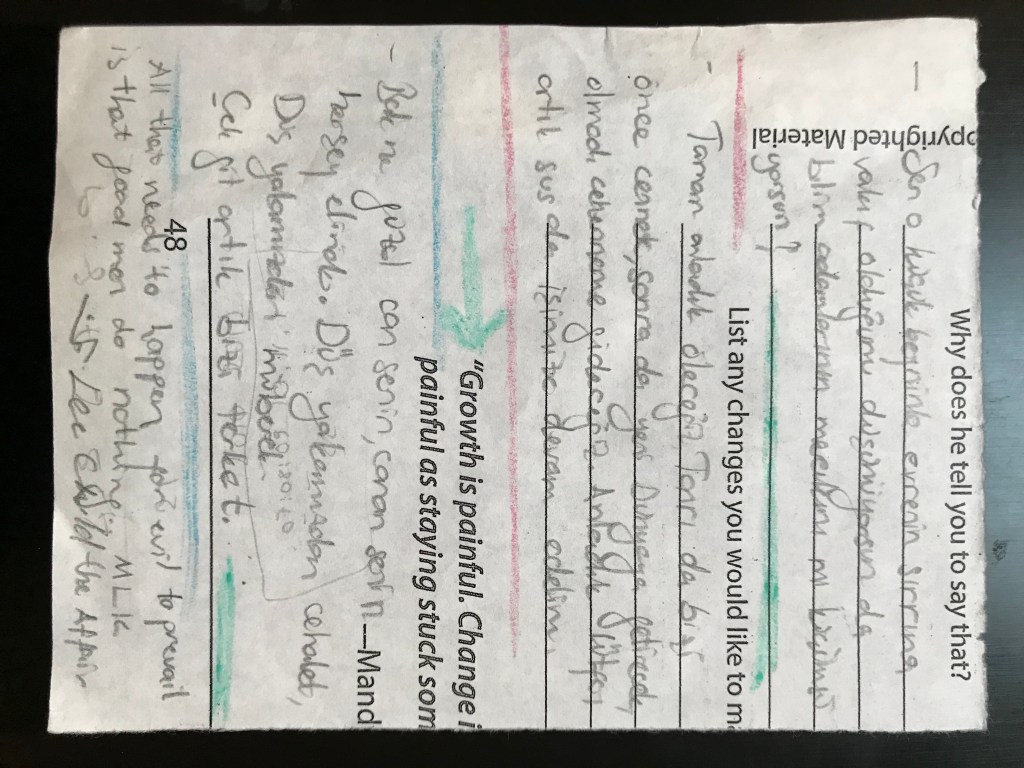 Why does he tell you to say that?
— Sen o küçük beyninle evrenin sırrına
vakıf olduğunu düşünüyorsun da
bilim adamlarının mı
yorsun?
pyrighted Material
List any changes you would like to m
- Tamam anladık öleceğiz Tanrı da bizi
önce cennet, sonra da yeni Dünyaya getirecek,
olmadı cehenneme gideceğiz Anladık Lütfen
artık sus da işimize devam edelim.
"Growth is painful. Change i
painful as staying stuck som
—Mand
- Bak ne güzel can senin, canan senin
herşey elinde. Düş yakamızdan cehalet,
Düş yakamızdan
Çek git artık bizi terket.
48
All that needs to happen for evil to prevail
is that good men do nothing - MLK
Lee Child the Affair